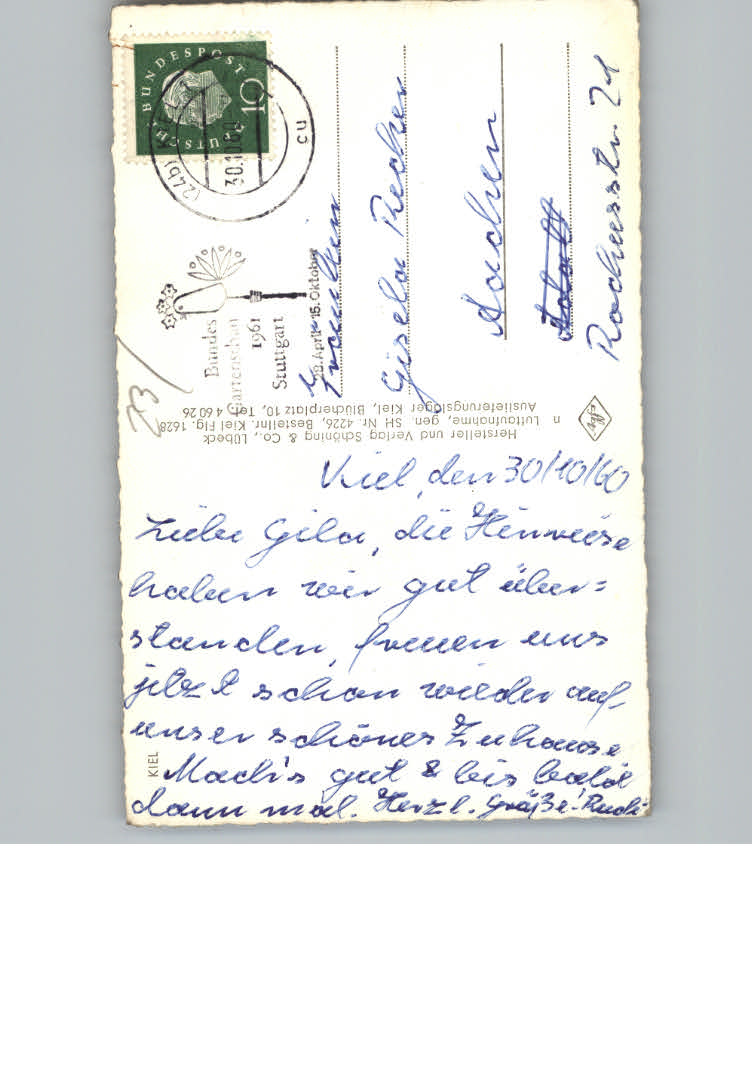 DEUTSCHE BUNDESPOST
10
(24b) KIEL 1
30.10.60
cu
Bundes
Gartenschau
1961
Stuttgart
28. April - 15. Oktober
23/
Fräulein
Gisela Recker
Aachen
Rochusstr. 21
Hersteller und Verlag Schöning & Co., Lübeck
n Luftaufnahme, gen. SH Nr. 4226, Bestellnr. Kiel Flg. 1628
Auslieferungslager Kiel, Blücherplatz 10, Tel. 4 60 26
Kiel, den 30/10/60
Liebe Gila, die Hinreise
haben wir gut über=
standen, freuen uns
jetzt schon wieder auf
unser schönes Zuhause
Mach's gut & bis bald
dann mal. Herzl. Grüße! Rudi
KIEL